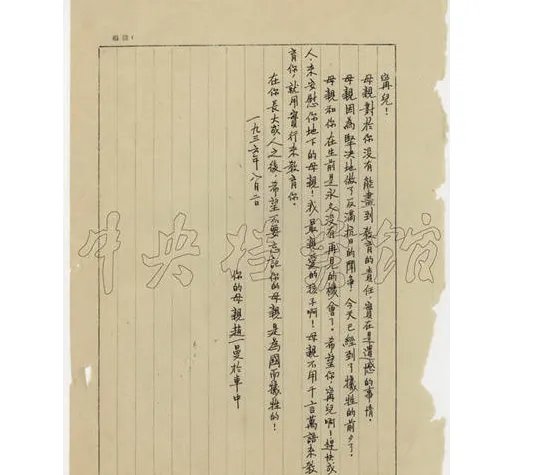 寧兒！
母親對於你沒有能盡到教育的責任、實在是遺憾的事情。
母親因為堅決地做了反滿抗日的鬪爭、今天已經到了犧牲的前夕了。
母親和你在生前是永久沒有再見的機會了。希望你、寧兒啊！趕快成
人、來安慰你地下的母親！我最親愛的孩子啊！母親不用千言萬語來教
育你、就用實行來教育你。
在你長大成人之後、希望不要忘記你的母親是為國而犧牲的！
一九三六年八月二日
你的母親趙一曼於車中
中央檔案館